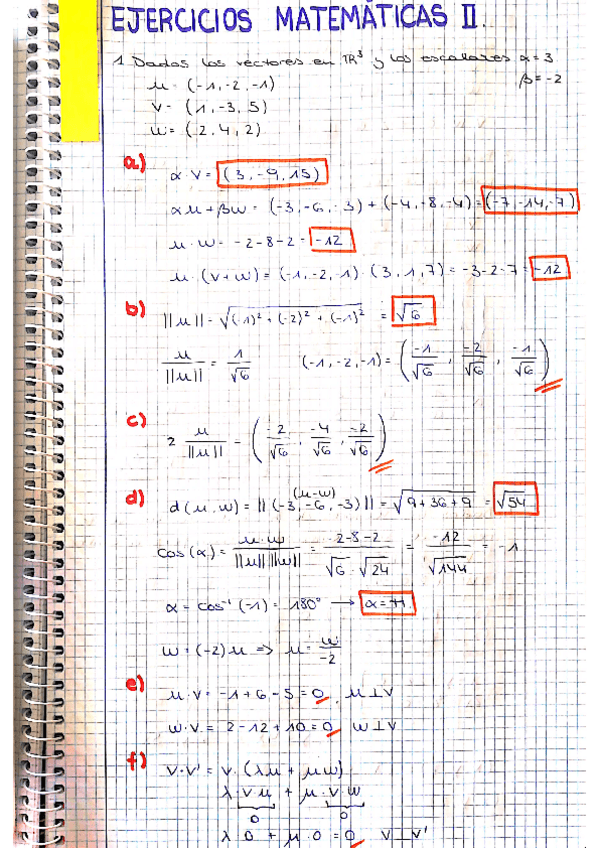 EJERCICIOS MATEMÁTICAS II.
1. Dados los vectores en ℝ³ y los escalares α = 3
β = -2
u = (-1, -2, -1)
v = (1, -3, 5)
w = (2, 4, 2)
a)
α·v = (3, -9, 15)
αu + βw = (-3, -6, -3) + (-4, -8, -4) = (-7, -14, -7)
u·w = -2 - 8 - 2 = -12
u·(v + w) = (-1, -2, -1)·(3, 1, 7) = -3 - 2 - 7 = -12
b)
||u|| = √((-1)² + (-2)² + (-1)²) = √6
u/||u|| = 1/√6 (-1, -2, -1) = (-1/√6, -2/√6, -1/√6)
c)
2 u/||u|| = (-2/√6, -4/√6, -2/√6)
d)
(u-w)
d(u, w) = ||(-3, -6, -3)|| = √(9 + 36 + 9) = √54
cos(α) = u·w/||u|| ||w|| = -2-8-2/√6·√24 = -12/√144 = -1
α = cos⁻¹(-1) = 180° → α = π
w = (-2)u => u = w/-2
e)
u·v = -1 + 6 - 5 = 0, u⊥v
w·v = 2 - 12 + 10 = 0, w⊥v
f)
v·v' = v·(λu + μw)
λ·v·u + μ·v·w
0 0
λ·0 + μ·0 = 0, v⊥v'